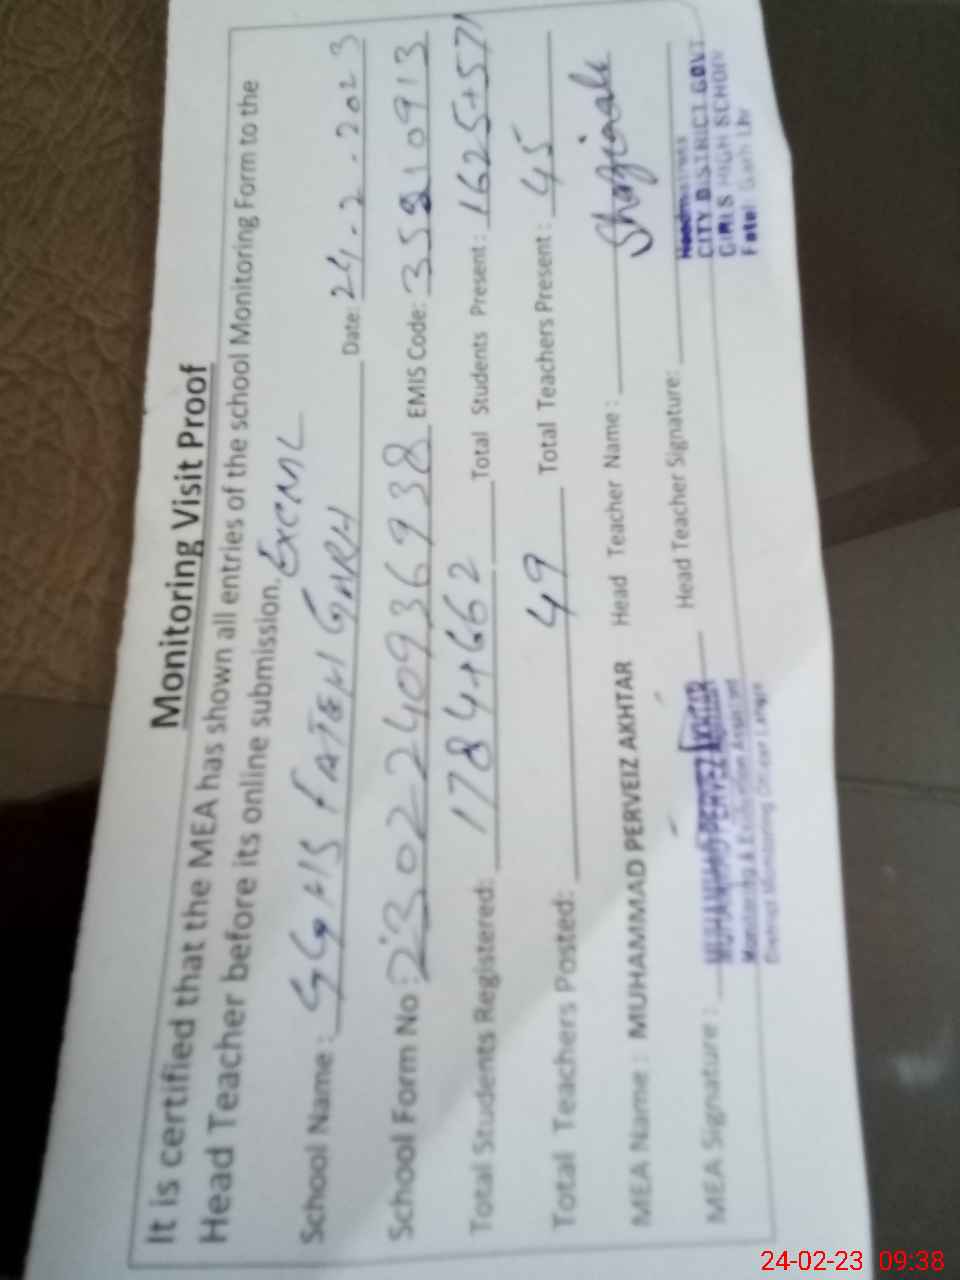 Monitoring Visit Proof
It is certified that the MEA has shown all entries of the school Monitoring Form to the
Head Teacher before its online submission.
School Name: GGHS FATEH GARH Date: 24-2-2023
School Form No: 2302240936938 EMIS Code: 35210913
Total Students Registered: 1784+662 Total Students Present: 1625+571
Total Teachers Posted: 49 Total Teachers Present: 45
MEA Name: MUHAMMAD PERVEIZ AKHTAR Head Teacher Name: Shazia
MEA Signature: Head Teacher Signature:
MUHAMMAD PERVEIZ AKHTAR
Monitoring & Evaluation Assistant
District Monitoring Officer Lahore
Headmistress
CITY DISTRICT GOVT
GIRLS HIGH SCHOOL
Fateh Garh Lhr
24-02-23 09:38